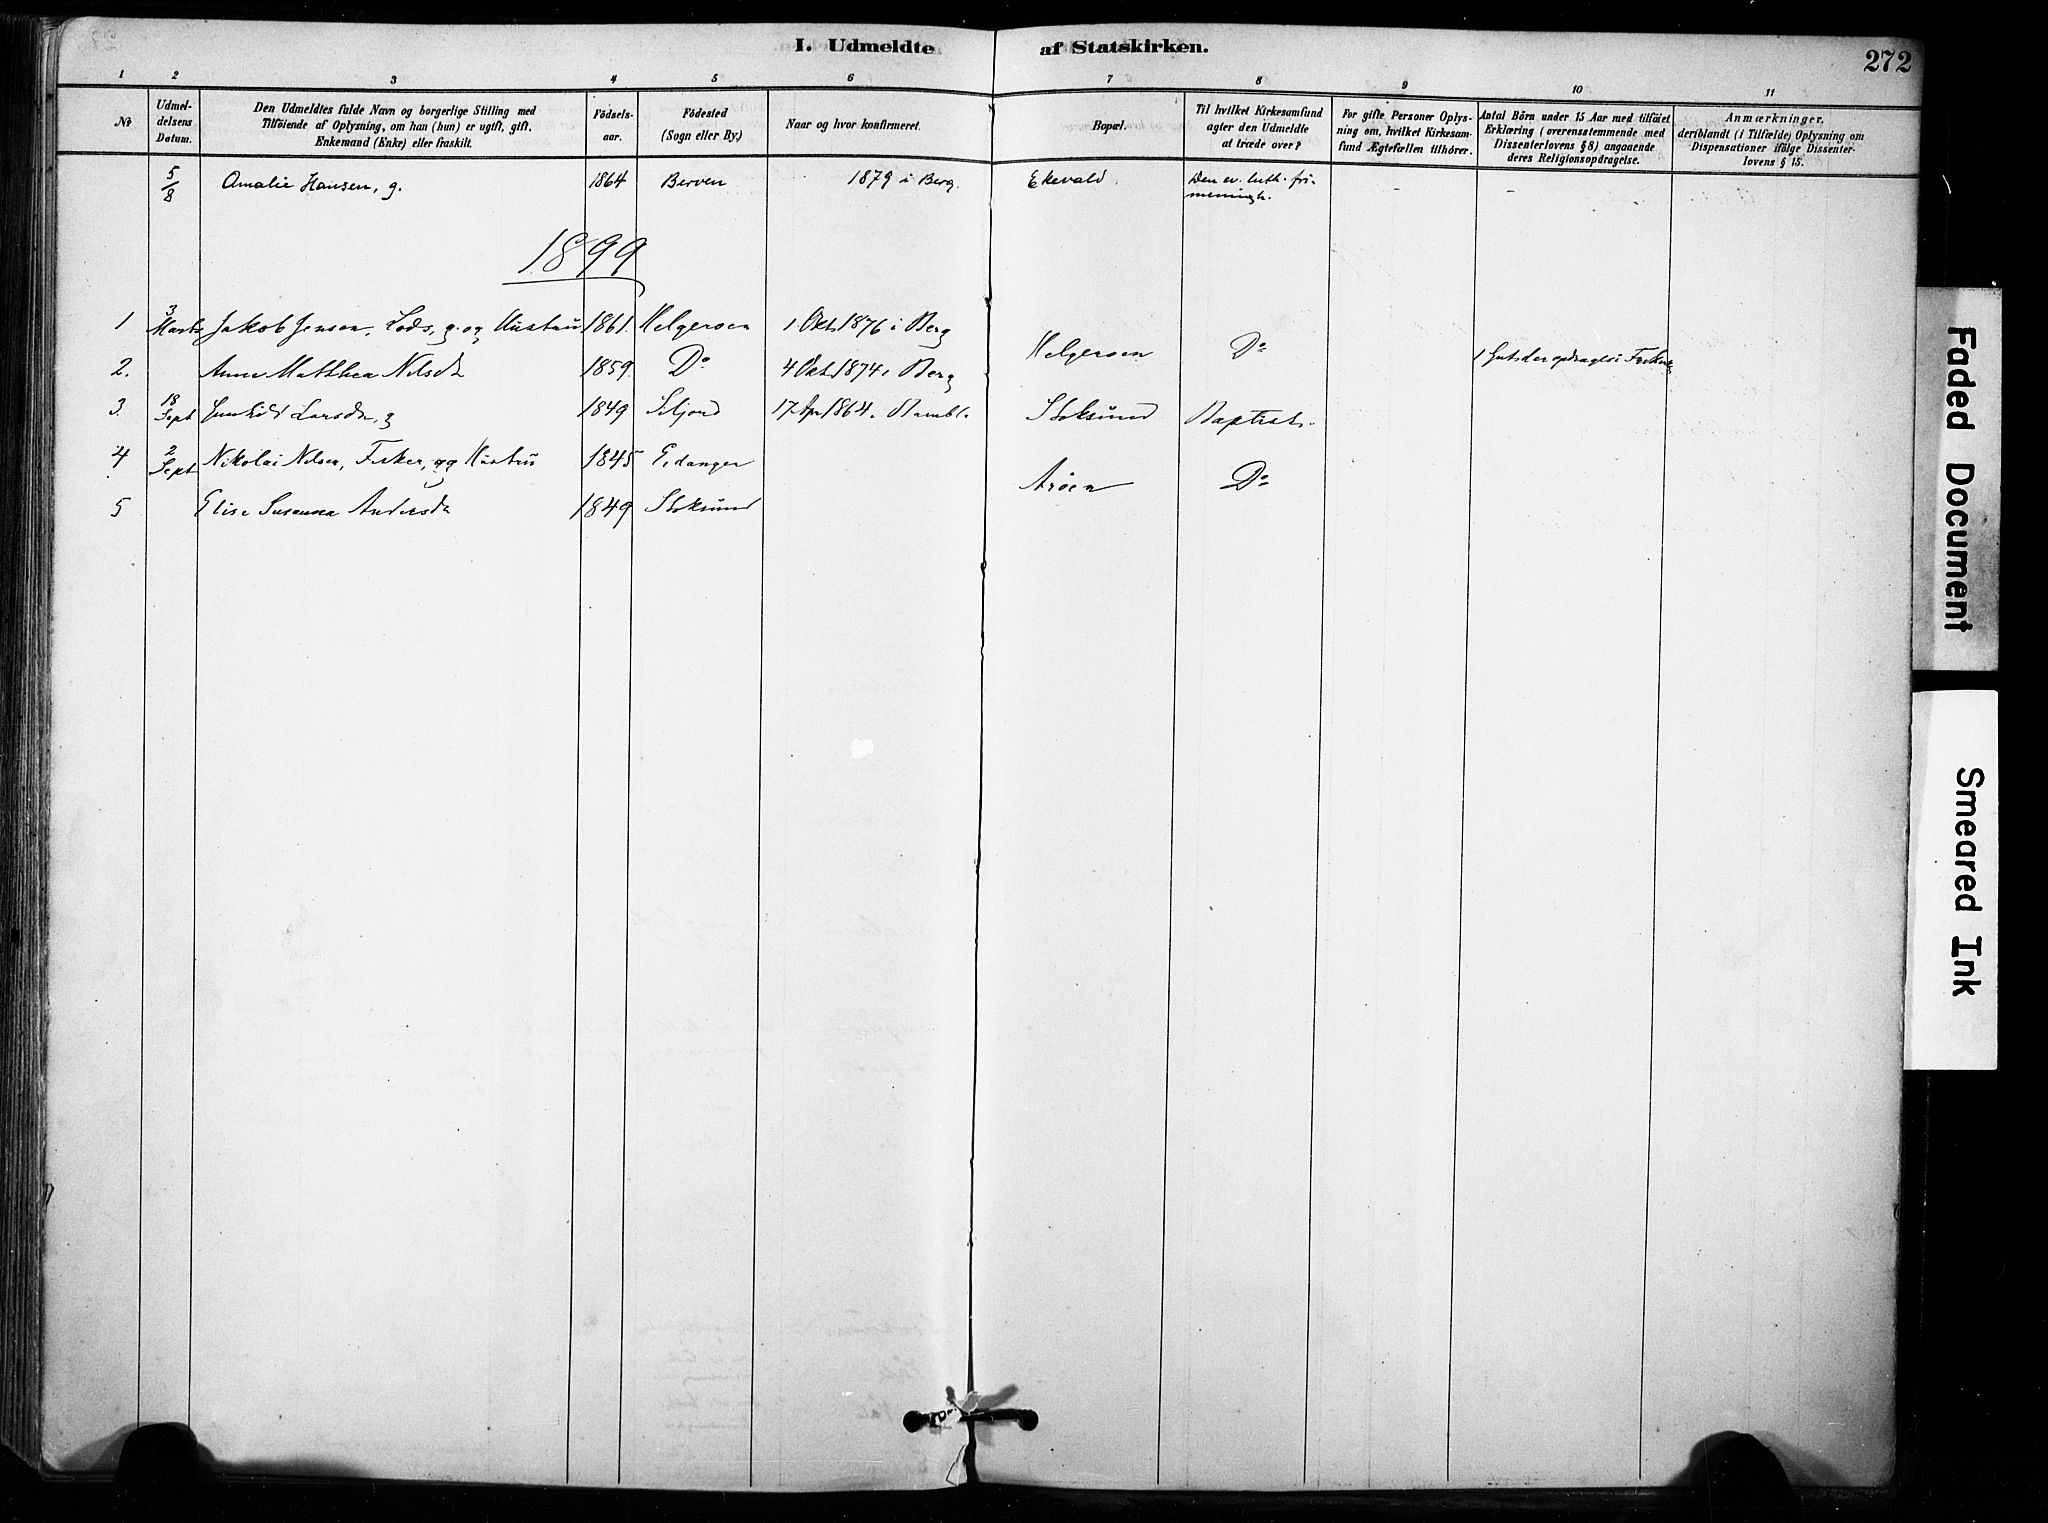 I. Udmeldte af Statskirken.
272
1 2 3 4 5 6 7 8 9 10 11
№
Udmel-
delsens
Datum.
Den Udmeldtes fulde Navn og borgerlige Stilling med
Tilføiende af Oplysning, om han (hun) er ugift, gift,
Enkemand (Enke) eller fraskilt.
Fødsels-
aar.
Fødested
(Sogn eller By.)
Naar og hvor konfirmeret.
Bopæl.
Til hvilket Kirkesamfund
agter den Udmeldte
at træde over?
For gifte Personer Oplys-
ning om, hvilket Kirkesam-
fund Ægtefællen tilhører.
Antal Børn under 15 Aar med tilføiet
Erklæring (overensstemmende med
Dissenterlovens § 8) angaaende
deres Religionsopdragelse.
Anmærkninger,
deriblandt (i Tilfælde) Oplysning om
Dispensationer ifølge Dissenter-
lovens § 15.
5/8 Amalie Hansen, g. 1864 Berven 1879 i Berg. Ekevald. Den ev. luth. fri-
menigh.
1899
1 3 Marts Jakob Jensen, Lods, g. og Hustru 1861. Helgeroen 1 Okt 1876 i Berg
2. Anne Mathea Nilsdr 1859 Do 4 Okt 1874 i Berg Helgeroen Do
3. 18 Sept Gunhild Larsdr, g 1849 Siljord 17 Apr 1864. Bamble Stoksund Baptist.
4 2 Sept Nikolai Nilsen, Fisker, og Hustru 1845 Eidanger
5 Elise Susanna Andersdr 1849 Stoksund Arøen Do
Faded Document
Smeared Ink